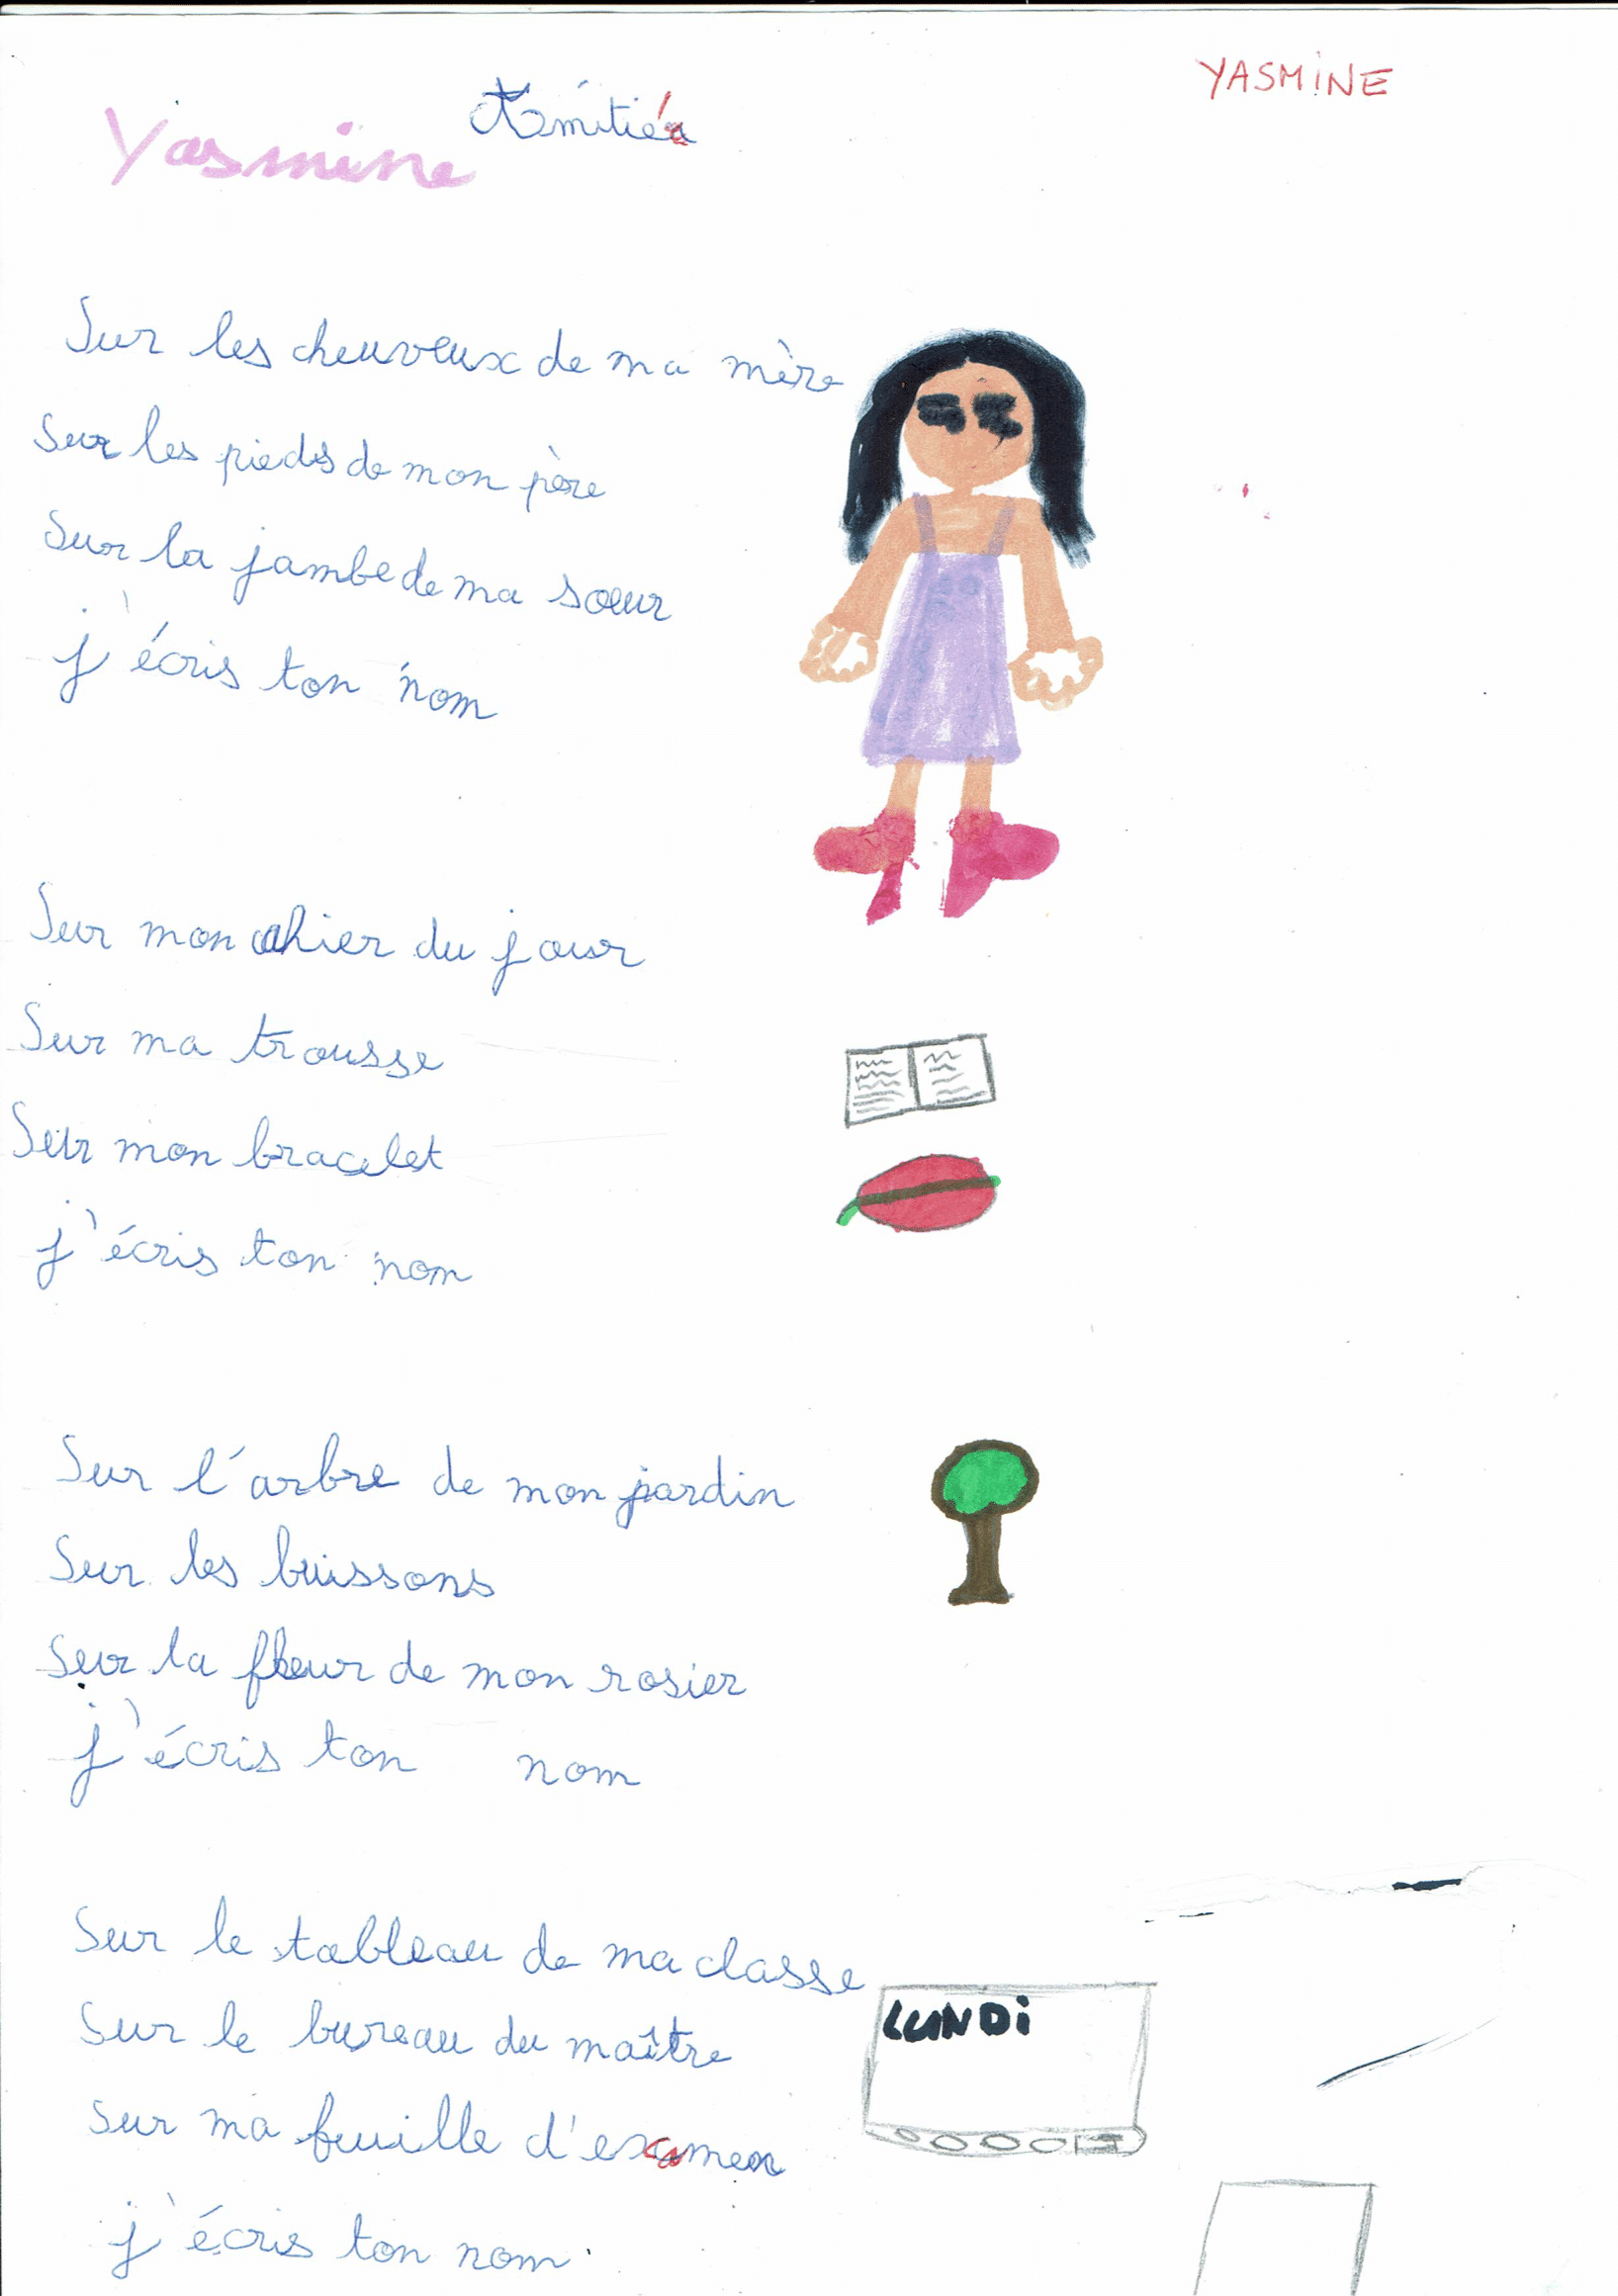 YASMINE
Amitié
Yasmine
Sur les cheuveux de ma mère
Sur les pieds de mon père
Sur la jambe de ma sœur
j'écris ton nom
Sur mon cahier du jour
Sur ma trousse
Sur mon bracelet
j'écris ton nom
Sur l'arbre de mon jardin
Sur les buissons
Sur la fleur de mon rosier
j'écris ton nom
Sur le tableau de ma classe
LUNDI
Sur le bureau du maître
Sur ma feuille d'examen
j'écris ton nom.